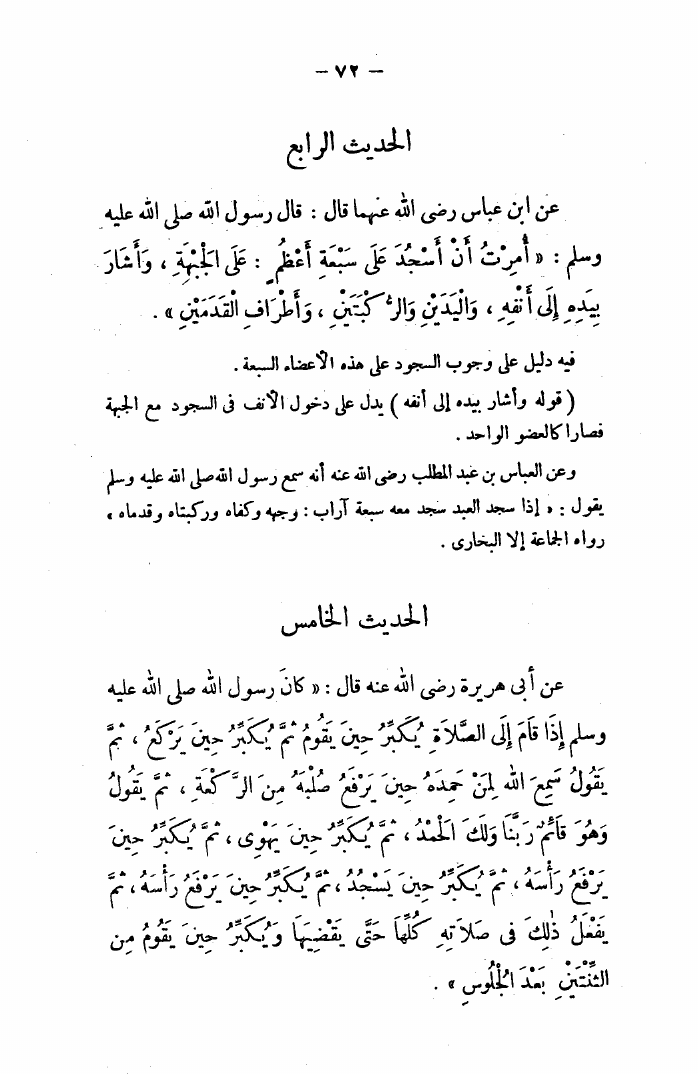 – ٧٢ –
الحديث الرابع
عن ابن عباس رضى الله عنهما قال : قال رسول الله صلى الله عليه
وسلم : « أُمِرْتُ أَنْ أَسْجُدَ عَلَى سَبْعَةِ أَعْظُمٍ : عَلَى الْجَبْهَةِ ، وَأَشَارَ
بِيَدِهِ إِلَى أَنْفِهِ ، وَالْيَدَيْنِ وَالرُّكْبَتَيْنِ ، وَأَطْرَافِ الْقَدَمَيْنِ » .
فيه دليل على وجوب السجود على هذه الأعضاء السبعة .
( قوله وأشار بيده إلى أنفه ) يدل على دخول الأنف فى السجود مع الجبهة
فصارا كالعضو الواحد .
وعن العباس بن عبد المطلب رضى الله عنه أنه سمع رسول الله صلى الله عليه وسلم
يقول : « إذا سجد العبد سجد معه سبعة آراب : وجهه وكفاه وركبتاه وقدماه »
رواه الجماعة إلا البخارى .
الحديث الخامس
عن أبى هريرة رضى الله عنه قال : « كانَ رسول الله صلى الله عليه
وسلم إِذَا قَامَ إِلَى الصَّلاَةِ يُكَبِّرُ حِينَ يَقُومُ ثُمَّ يُكَبِّرُ حِينَ يَرْكَعُ ، ثُمَّ
يَقُولُ سَمِعَ اللهُ لِمَنْ حَمِدَهُ حِينَ يَرْفَعُ صُلْبَهُ مِنَ الرَّكْعَةِ ، ثُمَّ يَقُولُ
وَهُوَ قَائِمٌ رَبَّنَا وَلَكَ الْحَمْدُ ، ثُمَّ يُكَبِّرُ حِينَ يَهْوِى ، ثُمَّ يُكَبِّرُ حِينَ
يَرْفَعُ رَأْسَهُ ، ثُمَّ يُكَبِّرُ حِينَ يَسْجُدُ ، ثُمَّ يُكَبِّرُ حِينَ يَرْفَعُ رَأْسَهُ ، ثُمَّ
يَفْعَلُ ذٰلِكَ فى صَلاَتِهِ كُلِّهَا حَتَّى يَقْضِيَهَا وَيُكَبِّرُ حِينَ يَقُومُ مِن
الثِّنْتَيْنِ بَعْدَ الْجُلُوسِ » .